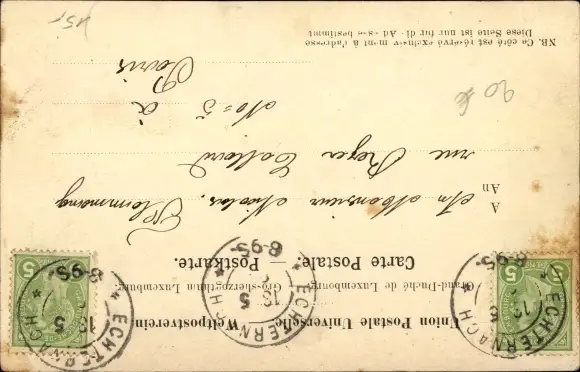 Union Postale Universelle. Weltpostverein.
Grand-Duché de Luxembourg. Gro-sherzogthum Luxemburg.
Carte Postale. Postkarte.
A
An
Monsieur Nicolas
rue
No = 5 à
Paris
NB. Ce côté est réservé exclusivement à l'adresse
Diese Seite ist nur für die Adresse bestimmt
ECHTERNACH
13 5
8-9S
ECHTERNACH
13 5
8-9S
ECHTERNACH
13 5
8-9S
5
5
5
5